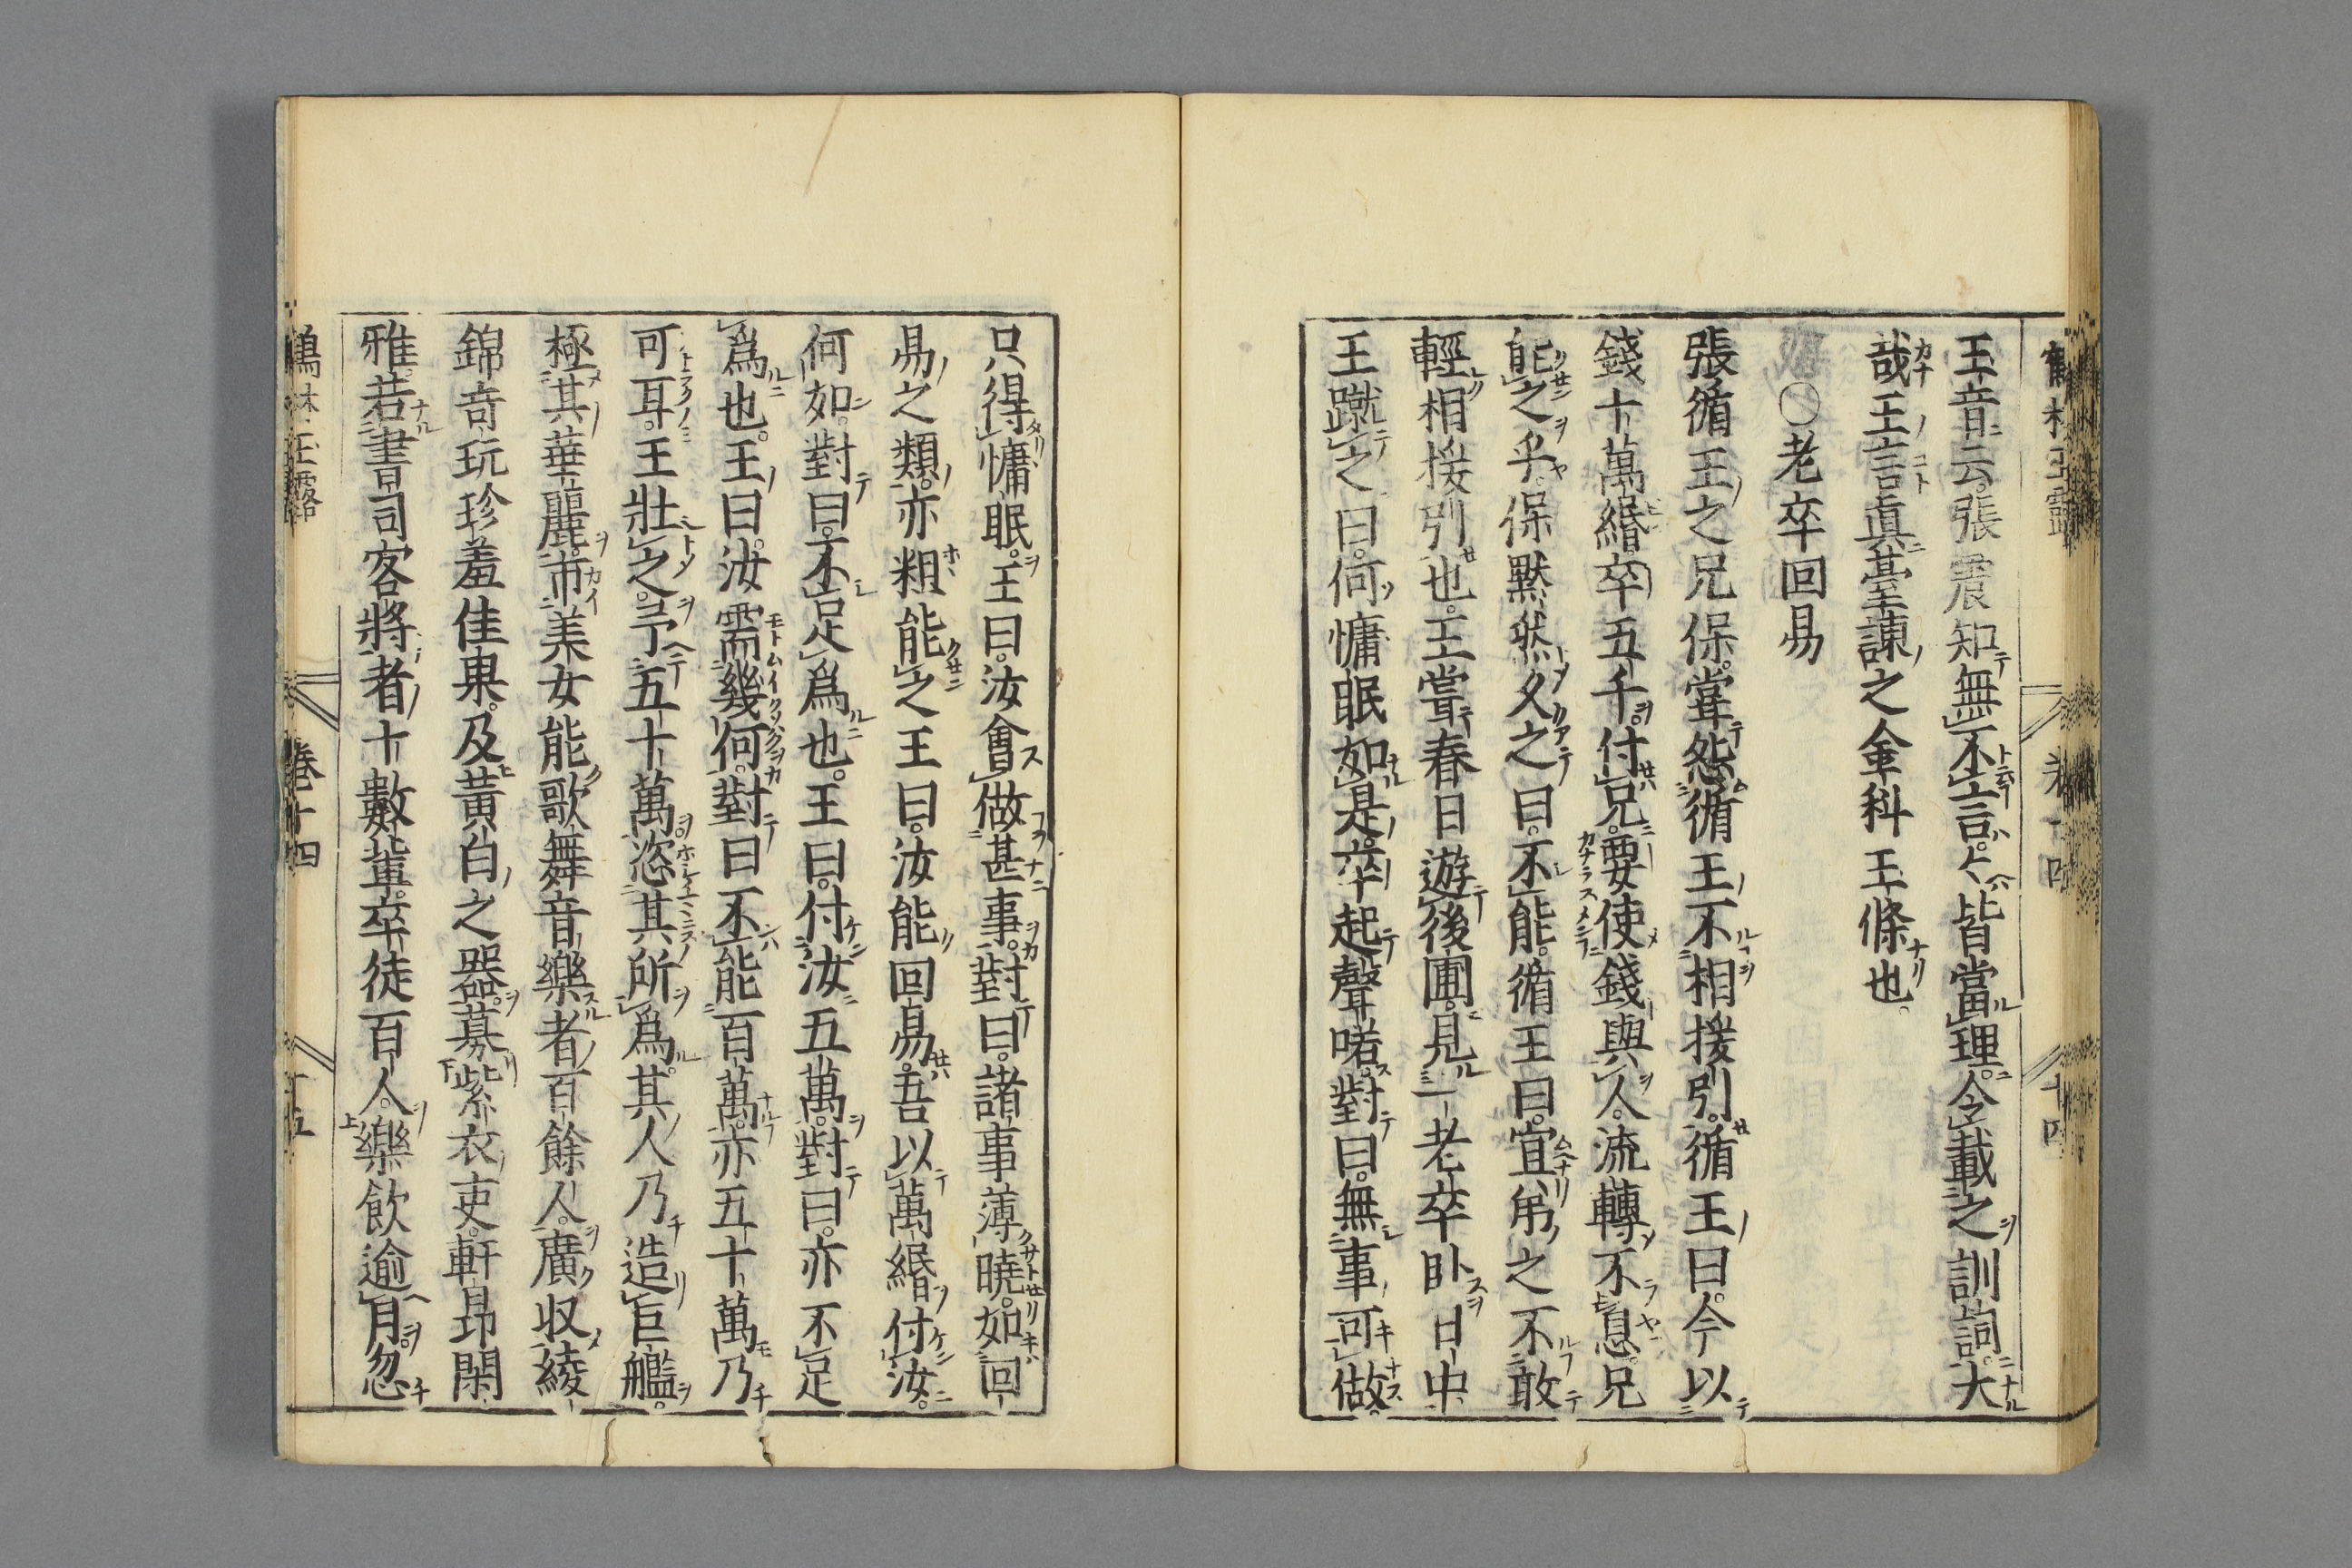 玉音云張震知無不言言皆當理令載之訓詞大
哉王言眞臺諫之金科玉條也
○老卒回易
張循王之兄保嘗怨循王不相援引循王曰今以
錢十萬緡卒五千付兄要使錢與人流轉不息兄
能之乎保默然久之曰不能循王曰宜弟之不敢
輕相援引也王嘗春日遊後圃見一老卒卧日中
王蹴之曰何慵眠如是卒起聲喏對曰無事可做
只得慵眠王曰汝會做甚事對曰諸事薄曉如回
易之類亦粗能之王曰汝能回易吾以萬緡付汝
何如對曰不足爲也王曰付汝五萬對曰亦不足
爲也王曰汝需幾何對曰不能百萬亦五十萬乃
可耳王壯之予五十萬恣其所爲其人乃造巨艦
極其華麗市美女能歌舞音樂者百餘人廣収綾
錦奇玩珍羞佳果及黃白之器募紫衣吏軒昻閑
雅若書司客將者十數輩卒徒百人樂飲逾月忽
鶴林玉露 卷十四 十五